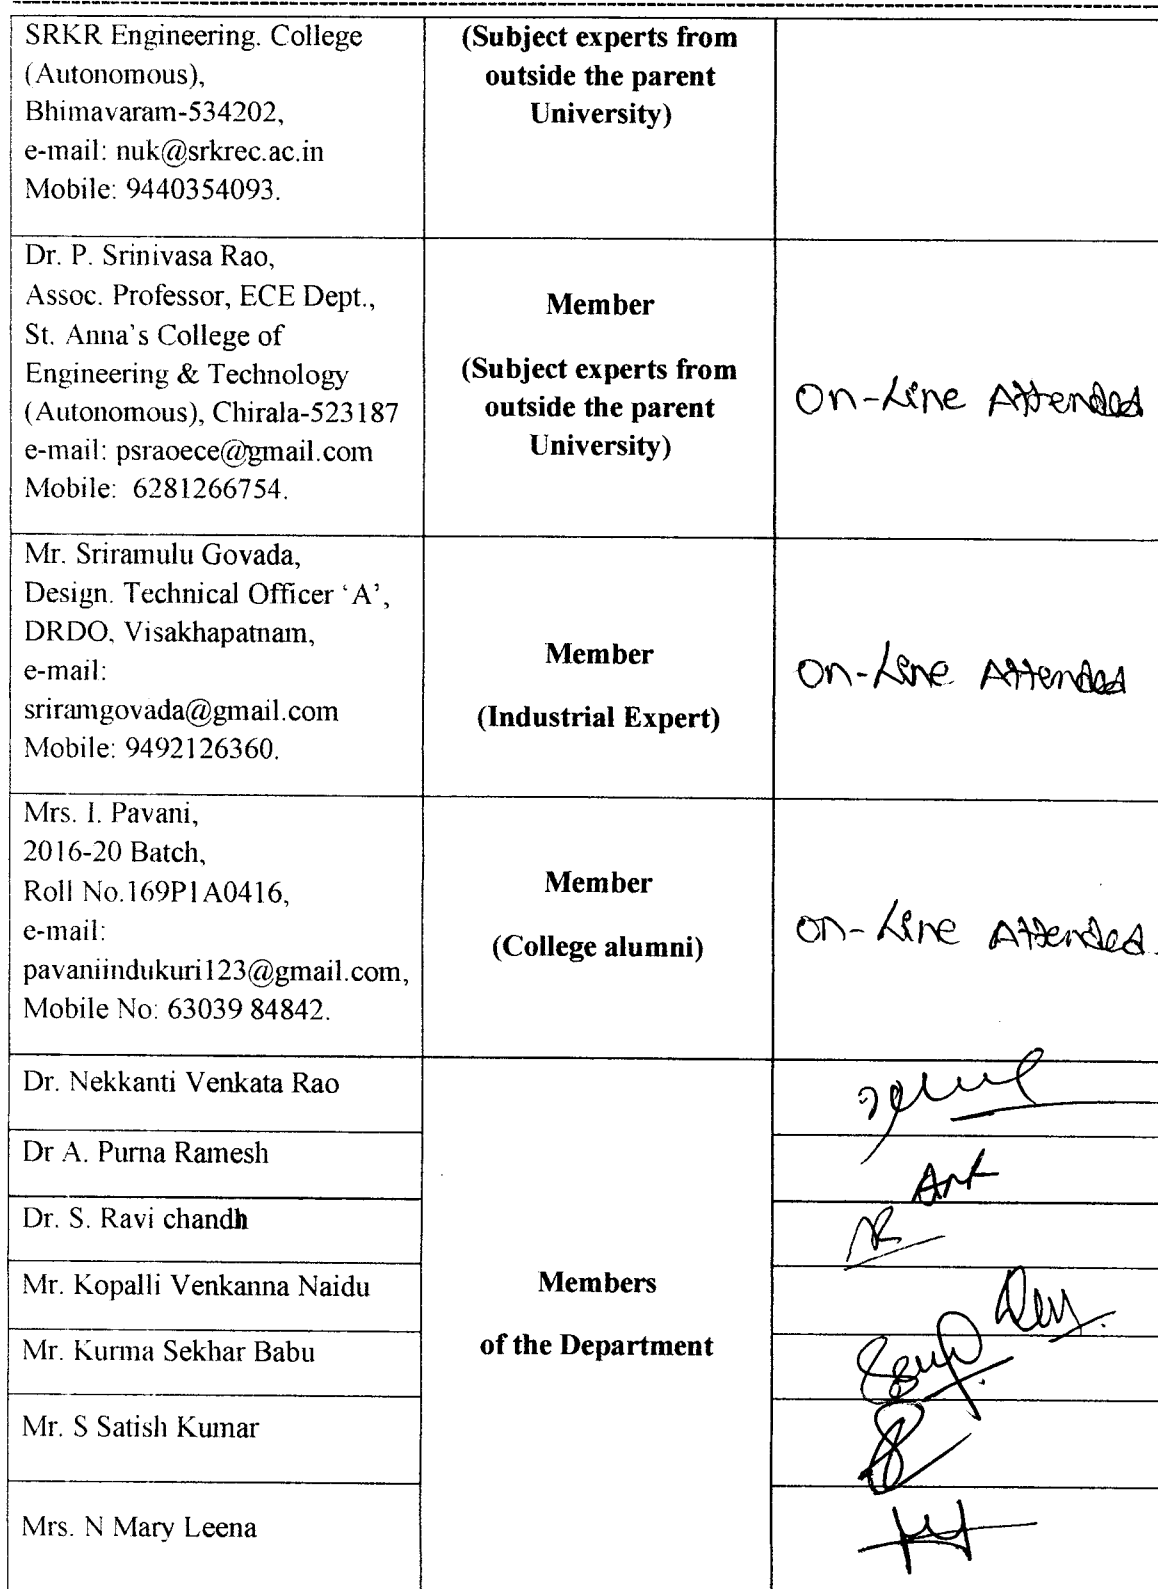 SRKR Engineering. College
(Autonomous),
Bhimavaram-534202,
e-mail: nuk@srkrec.ac.in
Mobile: 9440354093.
(Subject experts from
outside the parent
University)
Dr. P. Srinivasa Rao,
Assoc. Professor, ECE Dept.,
St. Anna's College of
Engineering & Technology
(Autonomous), Chirala-523187
e-mail: psraoece@gmail.com
Mobile: 6281266754.
Member
(Subject experts from
outside the parent
University)
On-Line Attended
Mr. Sriramulu Govada,
Design. Technical Officer 'A',
DRDO, Visakhapatnam,
e-mail:
sriramgovada@gmail.com
Mobile: 9492126360.
Member
(Industrial Expert)
On-Line Attended
Mrs. I. Pavani,
2016-20 Batch,
Roll No.169P1A0416,
e-mail:
pavaniindukuri123@gmail.com,
Mobile No: 63039 84842.
Member
(College alumni)
On-Line Attended.
Dr. Nekkanti Venkata Rao
Dr A. Purna Ramesh
Dr. S. Ravi chandh
Mr. Kopalli Venkanna Naidu
Mr. Kurma Sekhar Babu
Mr. S Satish Kumar
Mrs. N Mary Leena
Members
of the Department